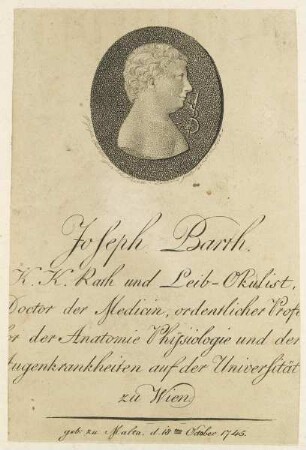 Joseph Barth.
K. K. Rath und Leib-Okulist,
Doctor der Medicin, ordentlicher Profe
or der Anatomie Physiologie und der
Augenkrankheiten auf der Universität
zu Wien
geb. zu Malta. d. 18ten October 1745.